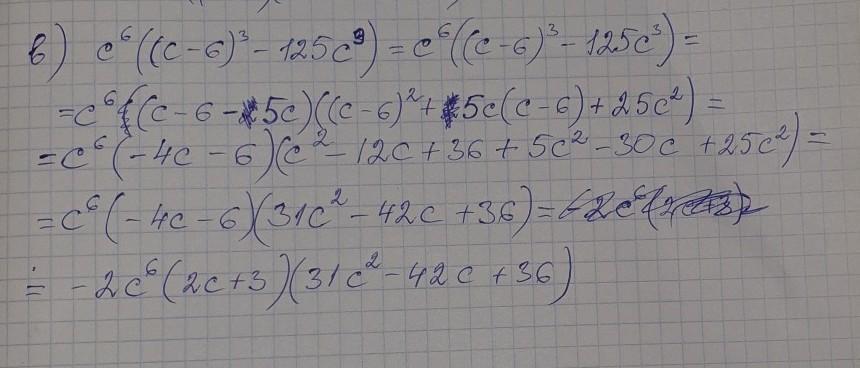 в) c⁶((c-6)³-125c³) = c⁶((c-6)³-125c³) =
= c⁶(c-6-5c)((c-6)²+5c(c-6)+25c²) =
= c⁶(-4c-6)(c²-12c+36+5c²-30c+25c²) =
= c⁶(-4c-6)(31c²-42c+36) =
= -2c⁶(2c+3)(31c²-42c+36)